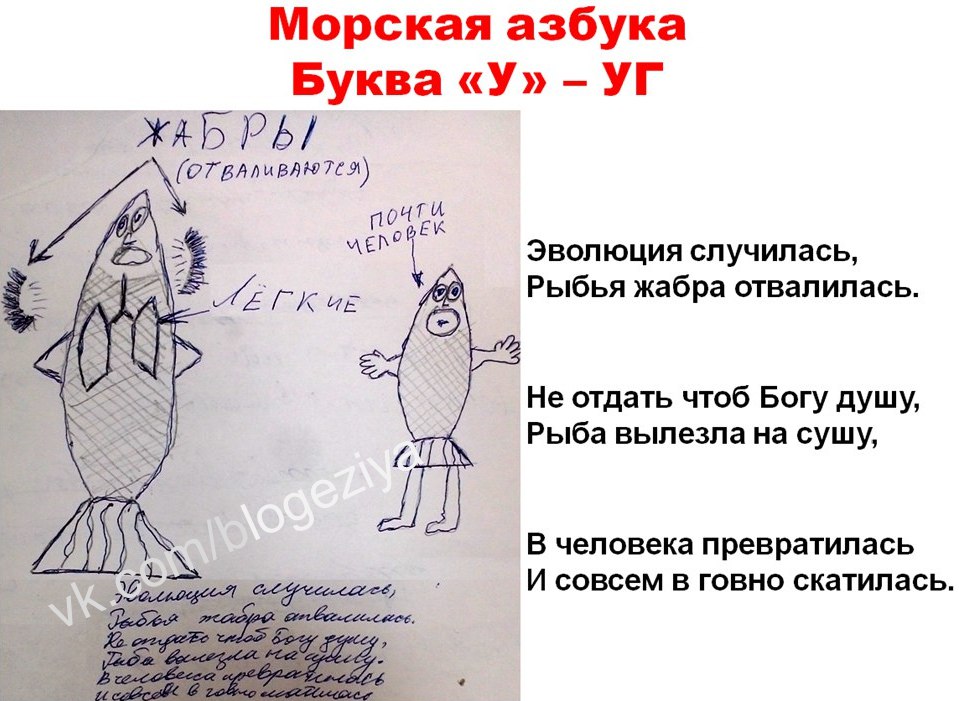 Морская азбука
Буква «У» – УГ
ЖАБРЫ
(ОТВАЛИВАЮТСЯ)
ПОЧТИ
ЧЕЛОВЕК
ЛЁГКИЕ
Эволюция случилась,
Рыбья жабра отвалилась.
Не отдать чтоб Богу душу,
Рыба вылезла на сушу,
В человека превратилась
И совсем в говно скатилась.
vk.com/blogeziya
Эволюция случилась,
Рыбья жабра отвалилась.
Не отдать чтоб Богу душу,
Рыба вылезла на сушу.
В человека превратилась
И совсем в говно скатилась